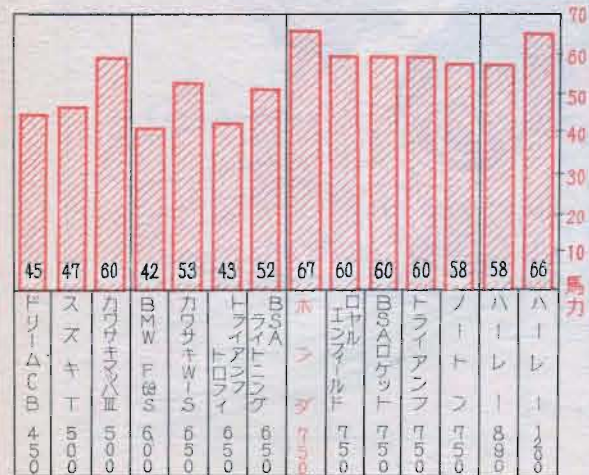 70
60
50
40
30
20
10
馬力
45 47 60 42 53 43 52 67 60 60 60 58 58 66
ドリームCB 450
スズキT 500
カワサキマッハⅢ 500
BMW 600
カワサキW1S 650
トライアンフ トロフィ 650
BSA ライトニング 650
ホンダ 750
ロヤル エンフィールド 750
BSAロケット 750
トライアンフ 750
ノートン 750
ハーレー
ハーレー